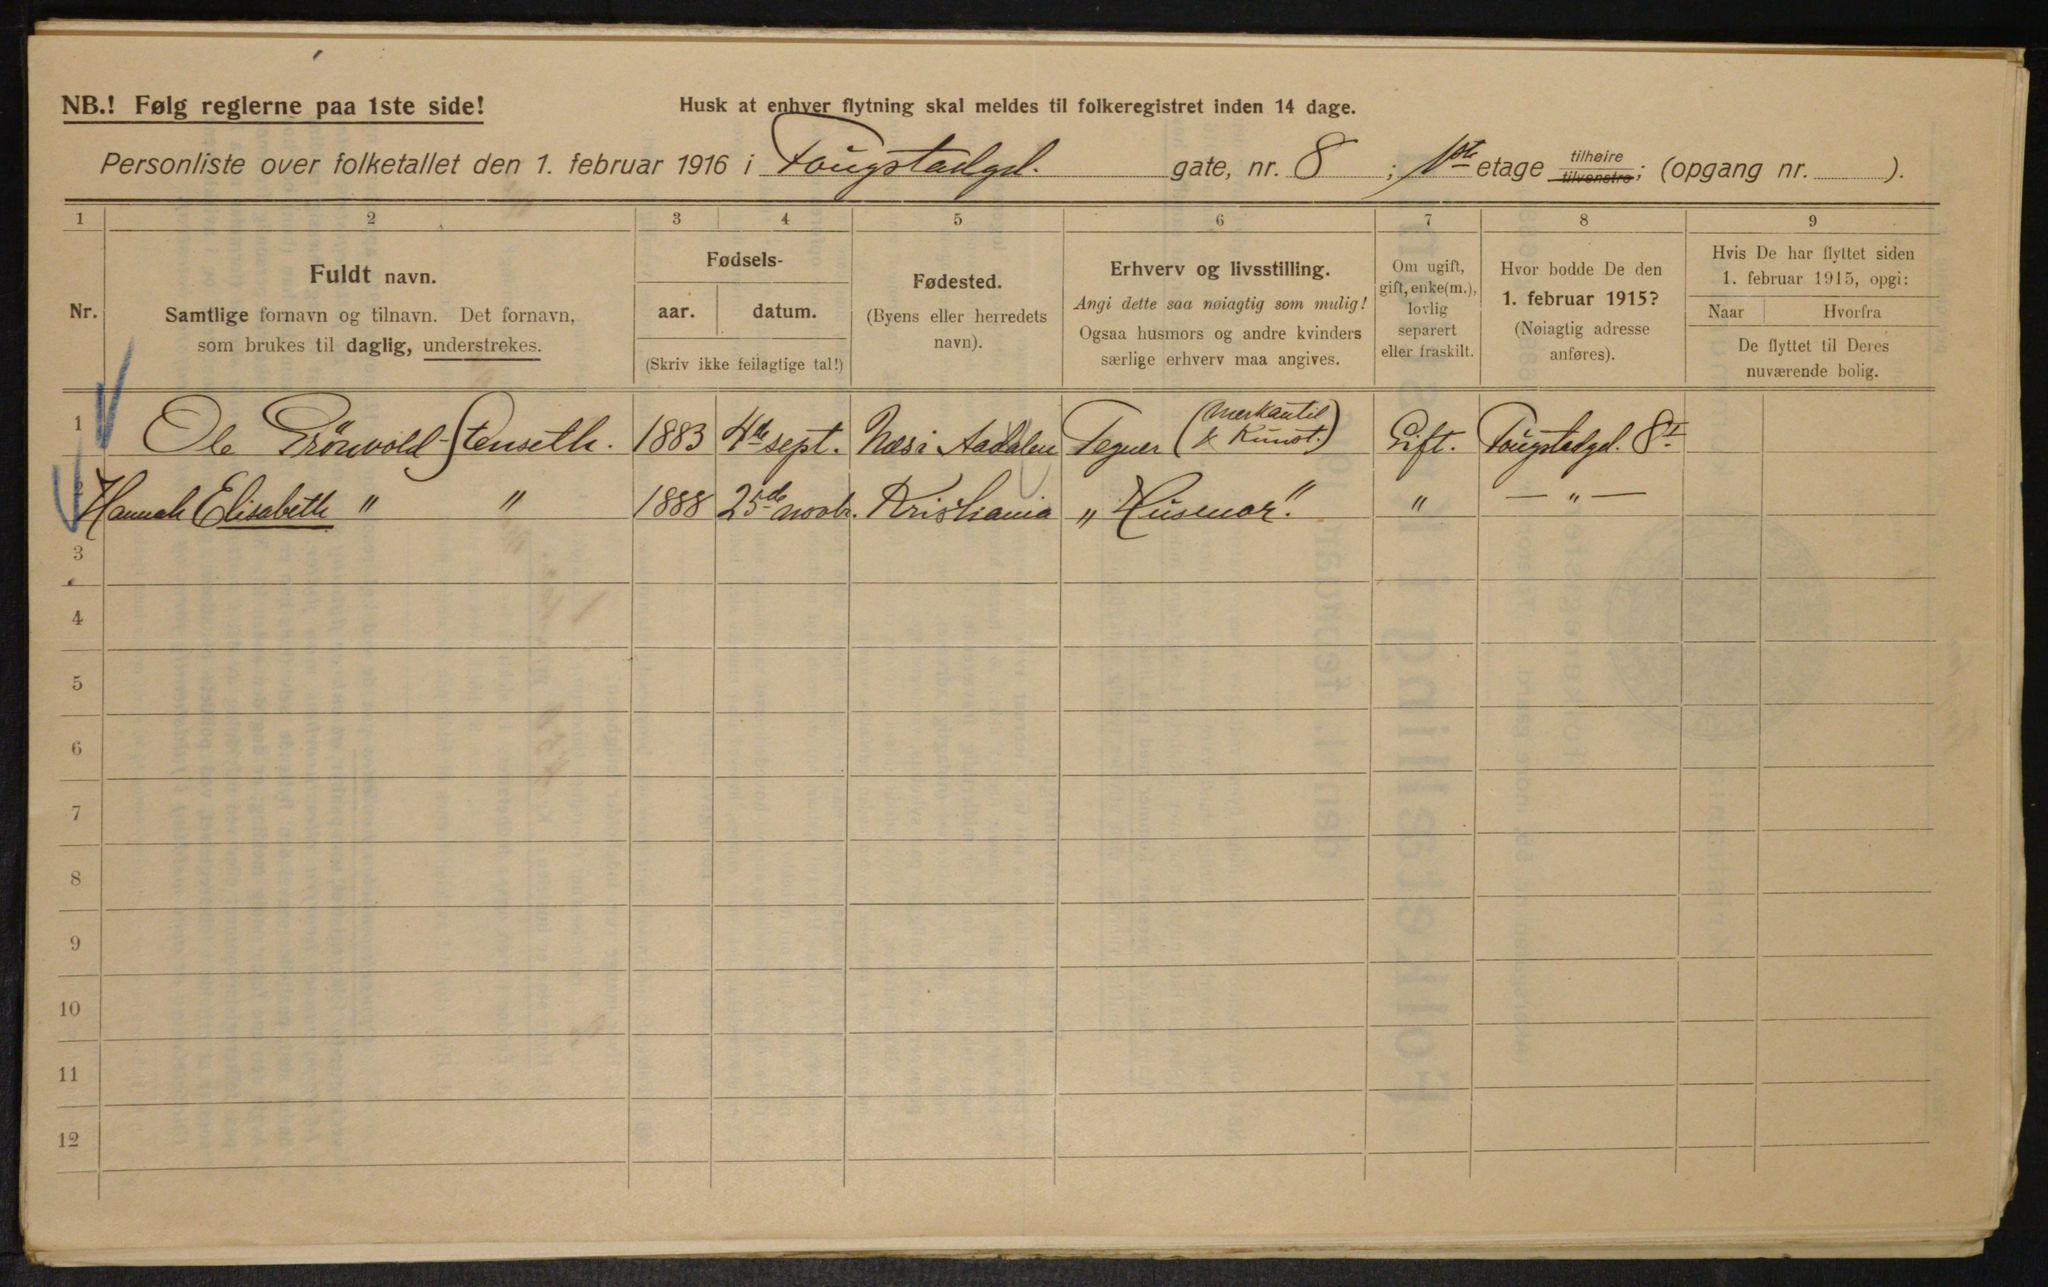 NB.! Følg reglerne paa 1ste side!
Husk at enhver flytning skal meldes til folkeregistret inden 14 dage.
Personliste over folketallet den 1. februar 1916 i Fougstadgd. gate, nr. 8 ; 1ste etage tilhøire tilvenstre; (opgang nr. ).
1 2 3 4 5 6 7 8 9
Nr.
Fuldt navn.
Samtlige fornavn og tilnavn. Det fornavn,
som brukes til daglig, understrekes.
Fødsels-
aar. datum.
(Skriv ikke feilagtige tal!)
Fødested.
(Byens eller herredets
navn).
Erhverv og livsstilling.
Angi dette saa nøiagtig som mulig!
Ogsaa husmors og andre kvinders
særlige erhverv maa angives.
Om ugift,
gift, enke(m.),
lovlig
separert
eller fraskilt.
Hvor bodde De den
1. februar 1915?
(Nøiagtig adresse
anføres).
Hvis De har flyttet siden
1. februar 1915, opgi:
Naar Hvorfra
De flyttet til Deres
nuværende bolig.
1 Ole Grönvold-Stenseth. 1883 4de sept. Næs i Aadalen Tegner (Merkantil & Kunst.) Gift. Fougstadgd. 8 I
2 Hannah Elisabeth " " 1888 25de novbr. Kristiania „ Husmor." " — „ —
3
4
5
6
7
8
9
10
11
12